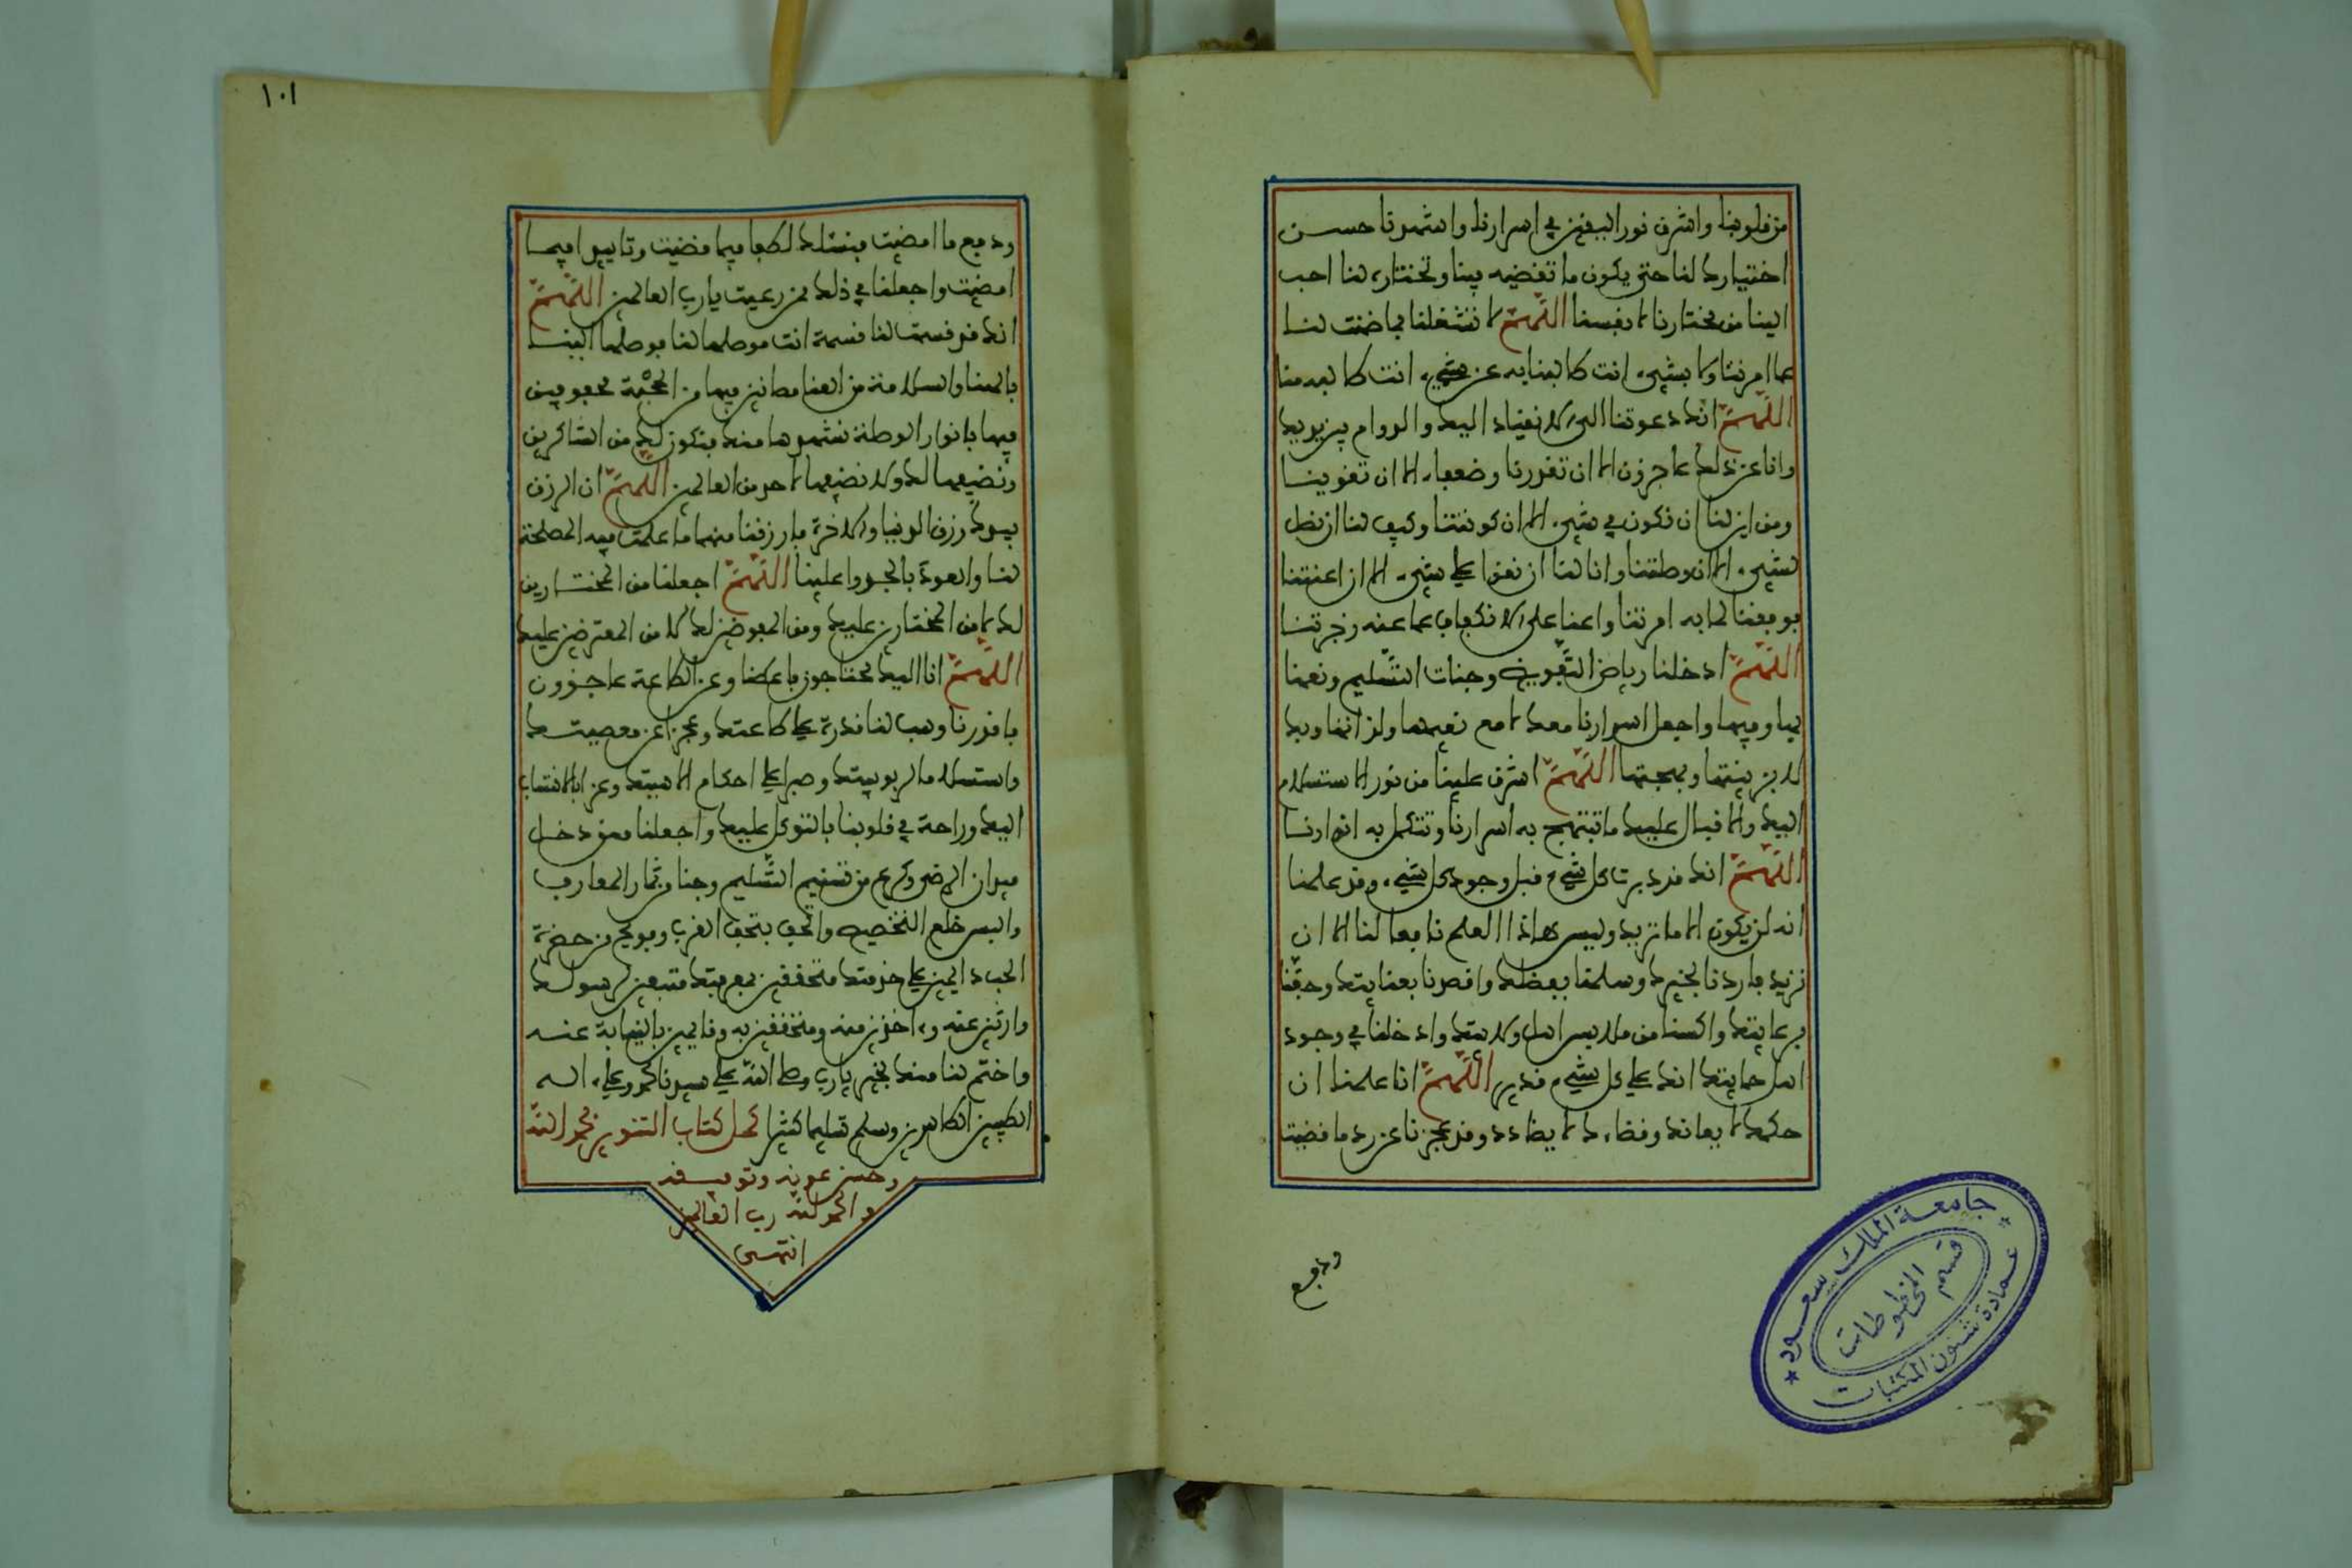 من قلوبنا واشرق نور اليقين في اسرارنا واشهدنا حسن
اختيارك لنا حتى يكون ما تقضيه فينا وتختاره لنا احب
الينا من مختارنا لانفسنا اللهم لا تشغلنا بما ضمنت لنا
عما امرتنا ولا بشيء انت ضامنا به عن شيء انت طالبه منا
اللهم انك دعوتنا الى الانقياد اليك والدوام بين يديك
وانا عن ذلك عاجزون الا ان تقدرنا وضعفاء الا ان تقوينا
ومن اين لنا ان نكون في شيء الا ان كونتنا وكيف لنا ان نصل
لشيء الا ان وصلتنا وانا لنا ان نقوا على شيء الا ان اعنتنا
فوفقنا لما به امرتنا واعنا على الانكفاف عما عنه زجرتنا
اللهم ادخلنا رياض التفويض وجنات التسليم ونعمنا
بها وفيها واجعل اسرارنا معك لا مع نعيمها ولذاتها وبك
لا بزينتها وبهجتها اللهم اشرق علينا من نور الاستسلام
اليك والاقبال عليك ما تبتهج به اسرارنا وتتكمل به انوارنا
اللهم انك قد دبرت كل شيء قبل وجود كل شيء وقد علمنا
انه لن يكون الا ما تريد وليس هاذا العلم نافعا لنا الا ان
تريد فاردنا بخيرك وسلمنا بفضلك واقصدنا بعنايتك وحفنا
برعايتك واكسنا من ملابس اهل ولايتك وادخلنا في وجود
اهل حمايتك انك على كل شيء قدير اللهم انا علمنا ان
حكمك لا يعاند وقضاءك لا يضادد وقد عجزنا عن رد ما قضيت
ودفع
١٠١
ودفع ما امضيت فنسئلك لطفا فيما قضيت وتاييدا فيما
امضيت واجعلنا في ذلك ممن رعيت يا رب العالمين اللهم
انك قد قسمت لنا قسمة انت موصلها لنا فوصلها الينا
بالهنا والسلامة من العنا مصانين فيها من الحجبة محفوفين
فيها بانوار الوصلة نشهدها منك فنكون لك من الشاكرين
ونضيفها لك ولا نضيفها لاحد من العالمين اللهم ان الرزق
بيدك رزق الدنيا والاخرة فارزقنا منهما ما علمت فيه المصلحة
لنا والعود بالجدوا علينا اللهم اجعلنا من المختارين
لك لا من المختارين عليك ومن المفوضين لك لا من المعترضين عليك
اللهم انا اليك محتاجون فاعطنا وعن الطاعة عاجزون
فاقدرنا وهب لنا قدرة على طاعتك وعجزا عن معصيتك
واستسلاما لربوبيتك وصبرا على احكام الاهيتك وعزا بالانتساب
اليك وراحة في قلوبنا بالتوكل عليك واجعلنا ممن دخل
ميدان الرضى وكرع من تسنيم التسليم وجنا ثمار المعارف
والبس خلع التخصيص واتحف بتحف القرب وفوتح من حضرة
الحب دايمين على خدمتك متحققين بمعرفتك متبعين لرسولك
وارثين عنه واخذين منه ومتحققين به وقايمين بالنيابة عنه
واختم لنا منك بخير يارب وصلى الله على سيدنا محمد وعلى اله
الطيبين الطاهرين وسلم تسليما كثيرا كمل كتاب التنوير بحمد الله
وحسن عونه وتوفيقه
والحمد لله رب العالمين
انتهى
جامعة الملك سعود
قسم المخطوطات
عمادة شئون المكتبات